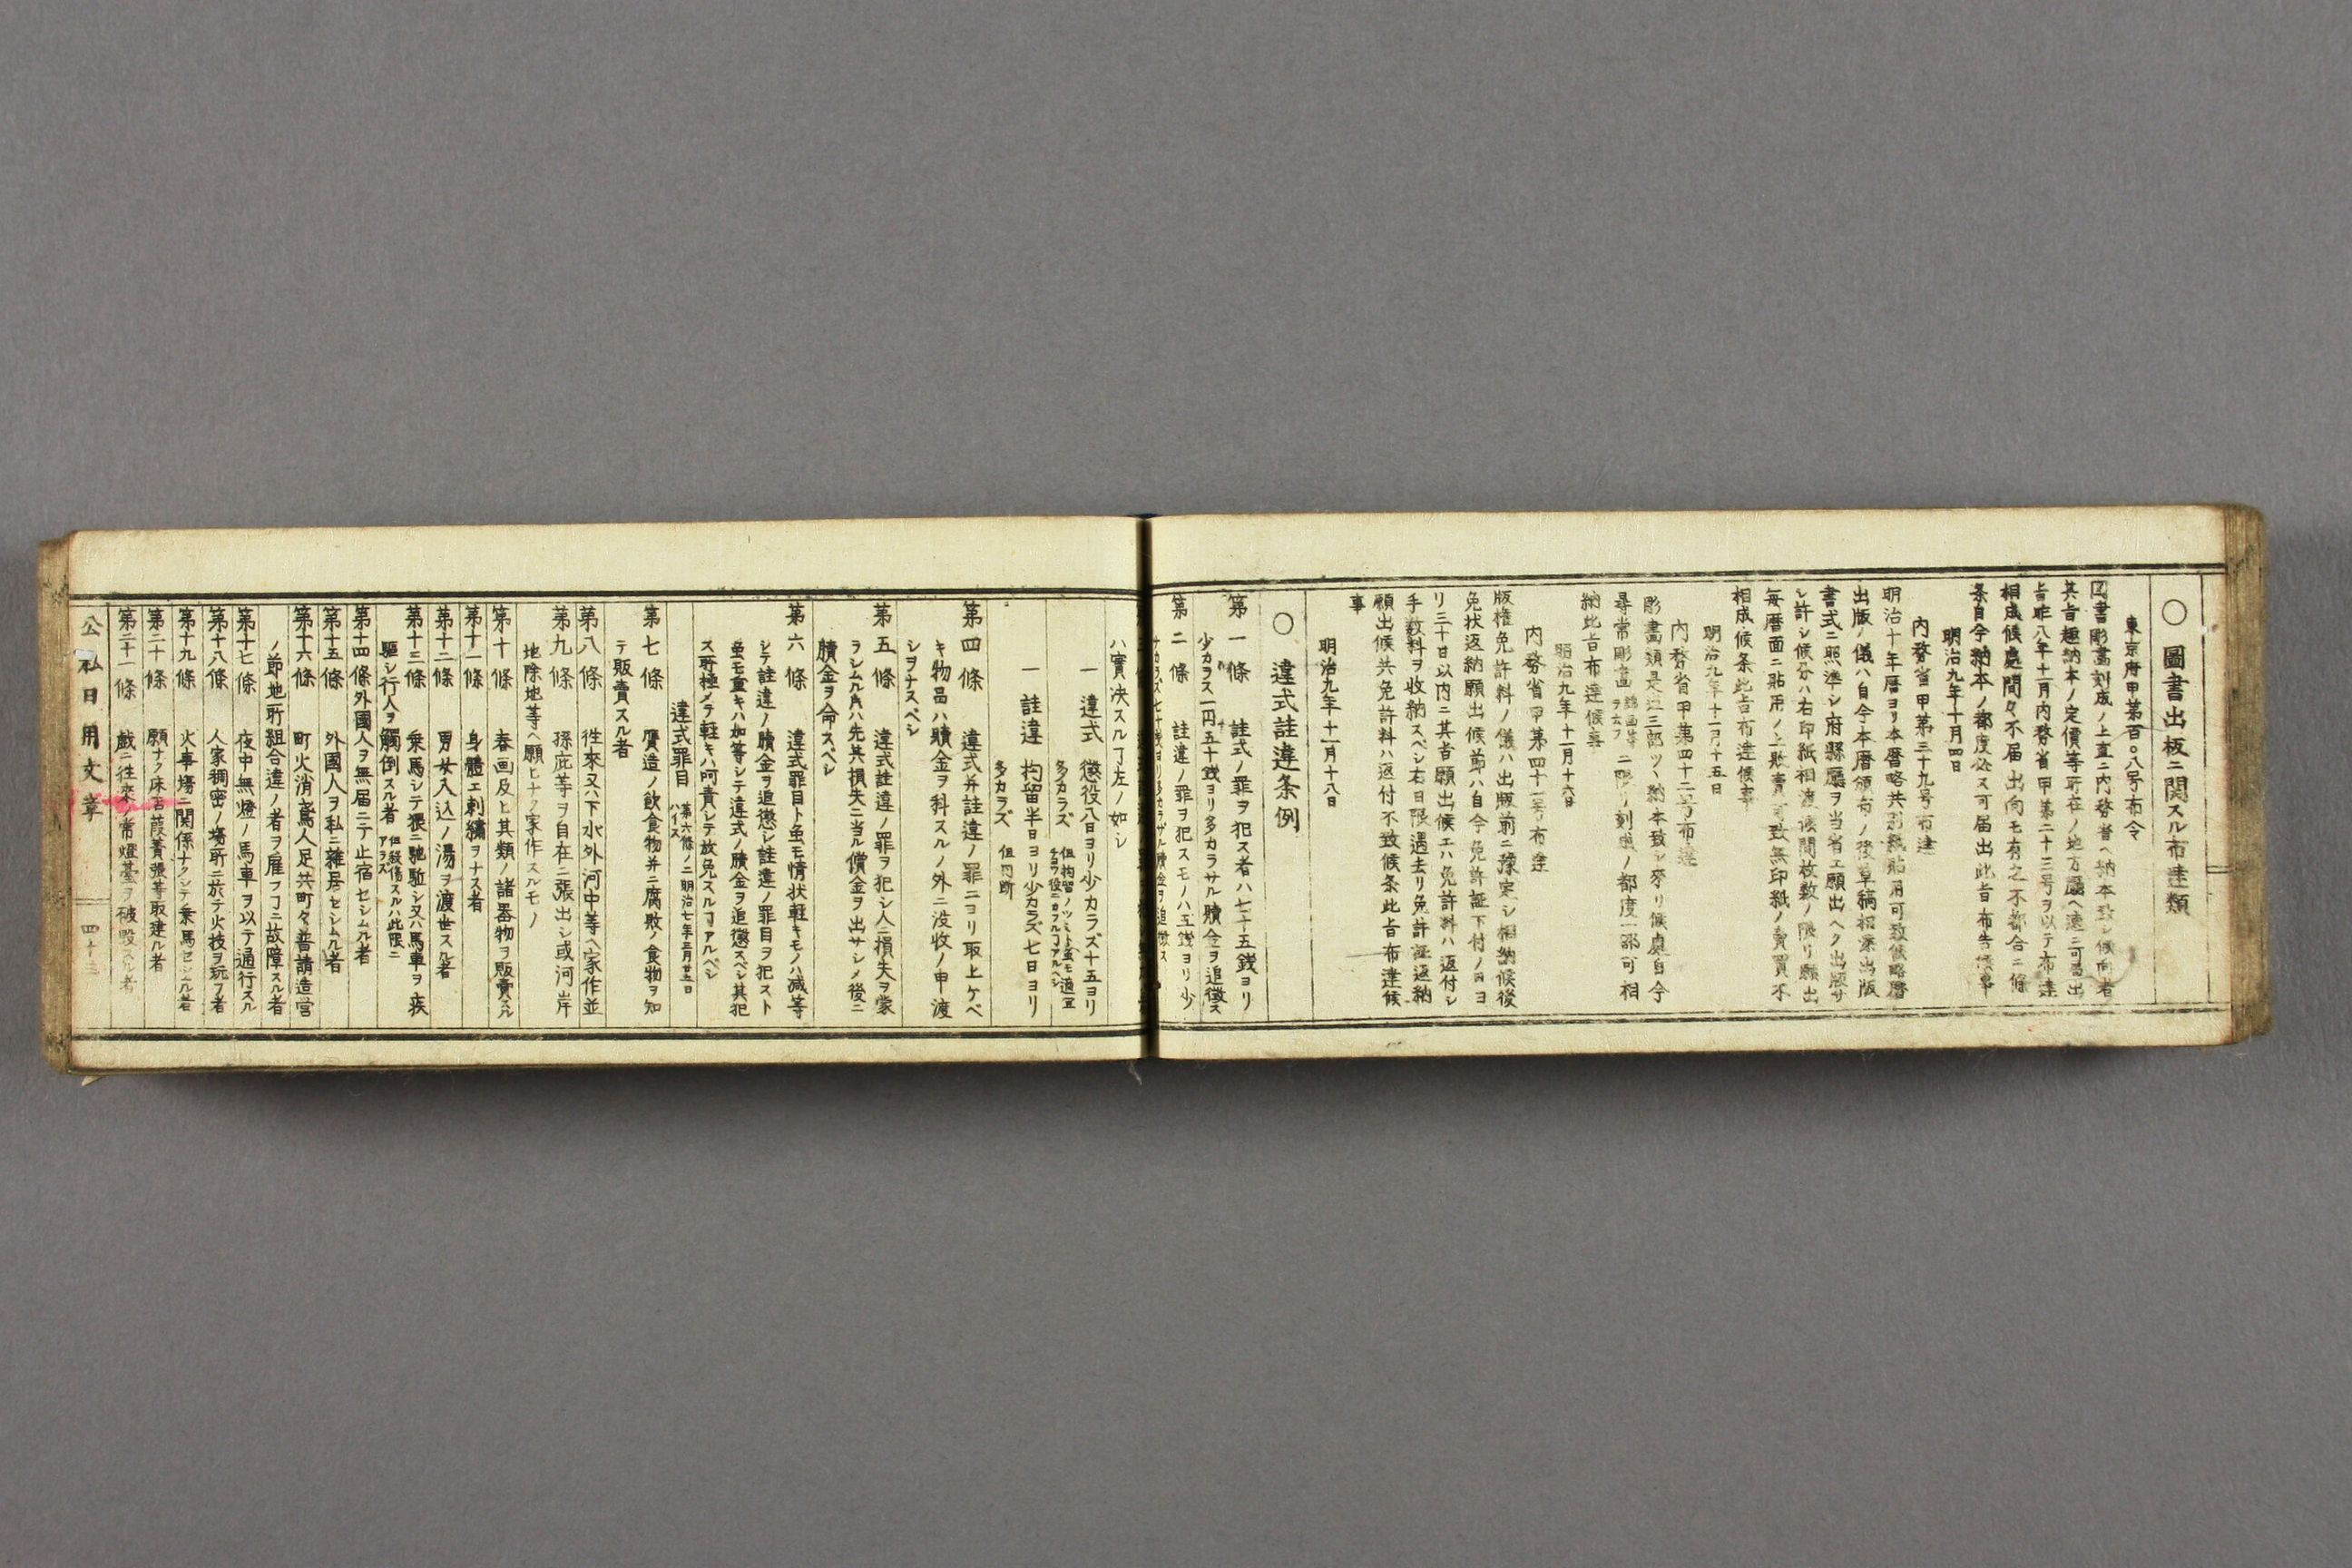 〇圖書出板ニ関スル布達類
東京府甲第百〇八号布令
図書彫畵刻成ノ上直ニ内務省ヘ納本致シ候向者
其旨趣納本ノ定價等所在ノ地方廳ヘ速ニ可届出
旨昨八年十二月内務省甲第二十三号ヲ以テ布達
相成候處間々不届出向モ有之不都合ニ候
条自今納本ノ都度必ス可届出此旨布告候事
明治九年十月四日
内務省甲第三十九号布達
明治十年暦ヨリ本暦略共別紙貼用可致候略暦
出版ノ儀ハ自今本暦頒布ノ後草稿相添出版
書式ニ照準シ府縣廳ヲ当省エ願出ヘク出版サ
シ許シ候分ハ右印紙相渡候間枚数ノ限リ願出
毎暦面ニ貼用ノ上販賣可致無印紙ノ賣買不
相成候条此旨布達候事
明治九年十一月十五日
内務省甲第四十二号布達
彫畵類是迄三部ツヽ納本致シ來リ候處自今
尋常彫畵 錦画等ヲ云フ ニ限リ刻成ノ都度一部可相
納此旨布達候事
明治九年十一月十六日
内務省甲第四十一号布達
版権免許料ノ儀ハ出版前ニ豫定シ相納候後
免状返納願出候節ハ自今免許証下付ノ日ヨ
リ三十日以内ニ其旨願出候エハ免許料ハ返付シ
手数料ヲ收納スベシ右日限過去リ免許証返納
願出候共免許料ハ返付不致候条此旨布達候
事
明治九年十一月十八日
〇違式註違条例
第一條 註式ノ罪ヲ犯ス者ハ七十五銭ヨリ
少カラス一円五十銭ヨリ多カラサル贖金ヲ追徴ス
第二條 註違ノ罪ヲ犯スモノハ五銭ヨリ少
ナカラズ七十銭ヨリ多カラザル贖金ヲ追徴ス
ハ實决スルヿ左ノ如シ
一違式 懲役八日ヨリ少カラズ十五ヨリ
多カラズ
一註違 拘留半日ヨリ少カラズ七日ヨリ
多カラズ
第四條 違式并註違ノ罪ニヨリ取上ケベ
キ物品ハ贖金ヲ科スルノ外ニ没收ノ申渡
シヲナスベシ
第五條 違式註違ノ罪ヲ犯シ人ニ損失ヲ蒙
ラシムル𪜈ハ先其損失ニ当ル償金ヲ出サシメ後ニ
贖金ヲ命スベシ
第六條 違式罪目ト虽モ情状軽キモノハ減等
シテ註違ノ贖金ヲ追徴シ註違ノ罪目ヲ犯スト
虽モ重キハ加等シテ違式ノ贖金ヲ追徴スベシ其犯
ス所極メテ軽キハ呵責シテ放免スルヿアルベシ
違式罪目 第六條ノ二明治七年三月廿五日
第七條 贋造ノ飲食物并ニ腐敗ノ食物ヲ知
テ販賣スル者
第八條 徃來又ハ下水外河中等ヘ家作並
孫庇等ヲ自在ニ張出シ或河岸
第九條 地除地等ヘ願ヒナク家作スルモノ
第十條 春画及ヒ其類ノ諸器物ヲ販賣スル
第十一條 身體エ刺繡ヲナス者
第十二條 男女入込ノ湯ヲ渡世スル者
第十三條 乗馬シテ猥ニ馳駈シ又ハ馬車ヲ疾
驅シ行人ヲ觸倒スル者 但殺傷スルハ此限ニアラズ
第十四條 外國人ヲ無届ニテ止宿セシムル者
第十五條 外國人ヲ私ニ雜居セシムル者
第十六條 町火消鳶人足共町々普請造営
ノ節地所組合違ノ者ヲ雇フヿニ故障スル者
第十七條 夜中無燈ノ馬車ヲ以テ通行スル
第十八條 人家稠密ノ塲所ニ於テ火技ヲ玩フ者
第十九條 火事塲ニ関係ナクシテ乗馬セシムル者
第二十條 願ナク床店葭簀張等取建ル者
第二十一條 戯ニ徃來常燈臺ヲ破毀スル者
公私日用文章 四十三